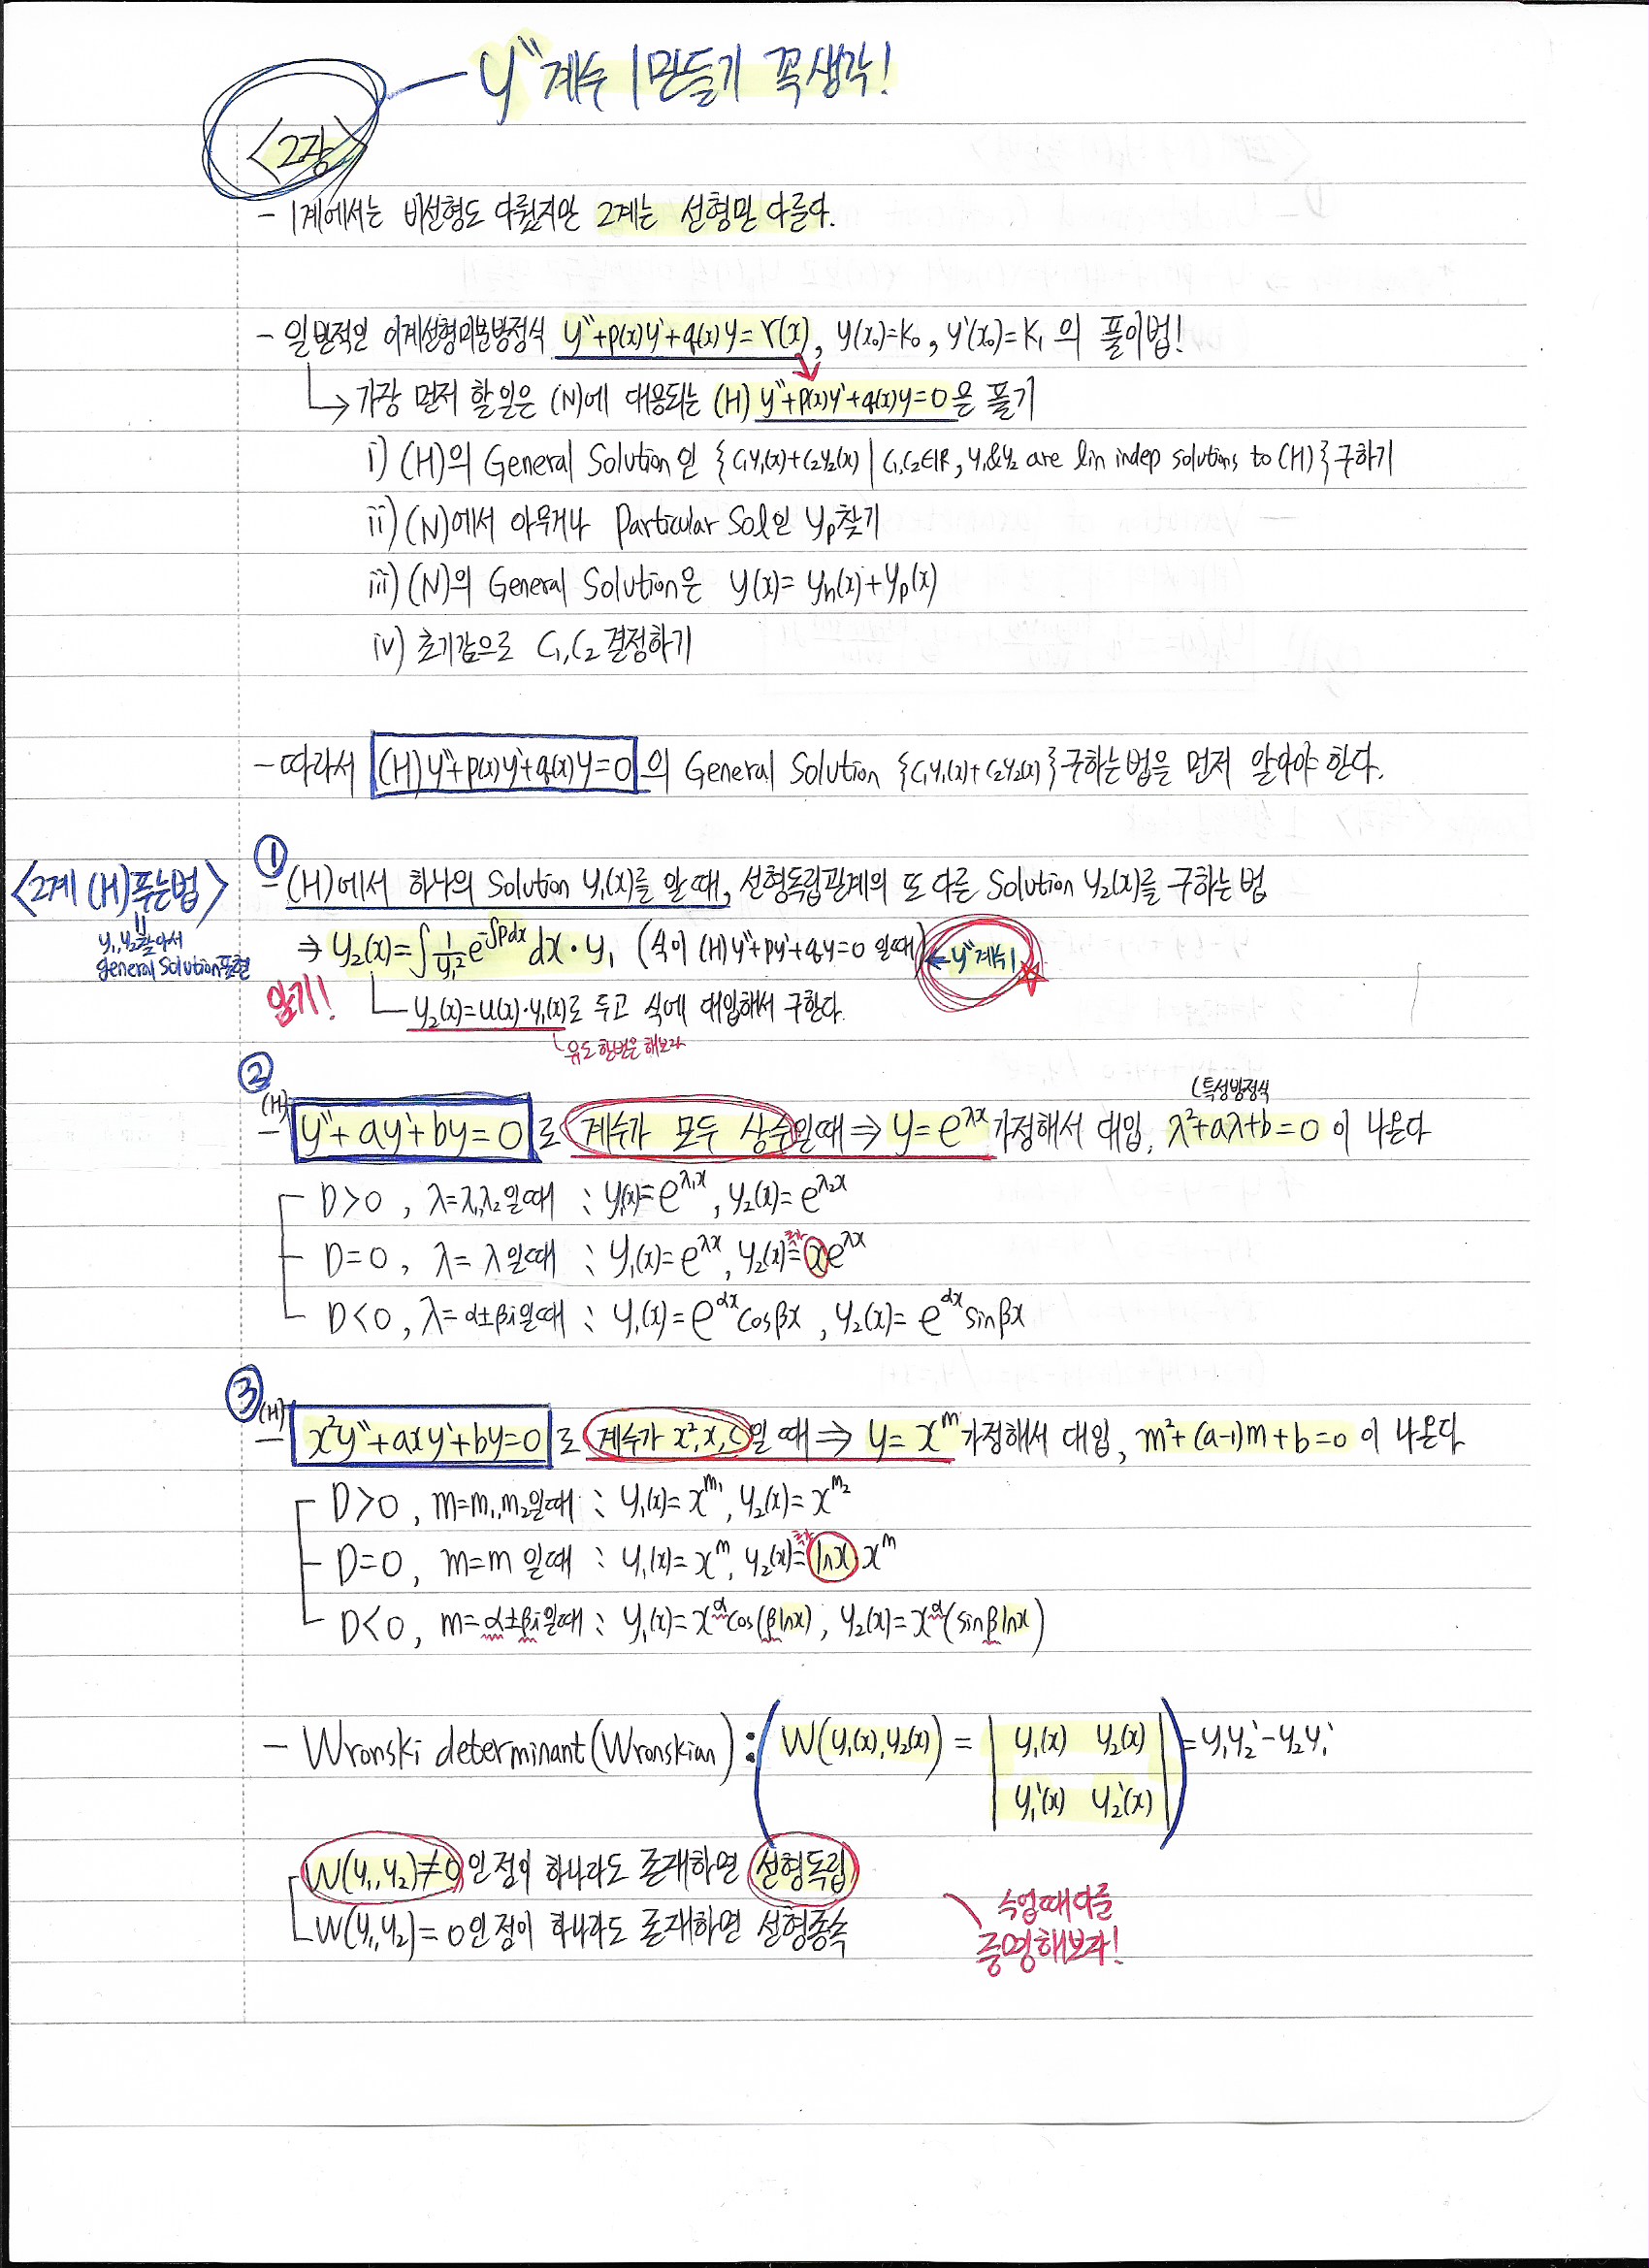 y'' 계수 1 만들기 꼭 생각!
<2장>
- 1계에서는 비선형도 다뤘지만 2계는 선형만 다룬다.
- 일반적인 이계선형미분방정식 y''+p(x)y'+q(x)y=r(x), y(x₀)=K₀, y'(x₀)=K₁ 의 풀이법!
↳ 가장 먼저 할 일은 (N)에 대응되는 (H) y''+p(x)y'+q(x)y=0 을 풀기
i) (H)의 General Solution인 {c₁y₁(x)+c₂y₂(x) | c₁,c₂∈ℝ, y₁&y₂ are lin indep solutions to (H)} 구하기
ii) (N)에서 아무거나 Particular Sol인 yₚ찾기
iii) (N)의 General Solution은 y(x)= yₕ(x)+yₚ(x)
iv) 초기값으로 C₁,C₂ 결정하기
- 따라서 (H) y''+p(x)y'+q(x)y=0 의 General Solution {c₁y₁(x)+c₂y₂(x)} 구하는법을 먼저 알아야 한다.
<2계 (H)푸는법>
=
y₁,y₂찾아서
general Solution표현
①
- (H)에서 하나의 Solution y₁(x)를 알 때, 선형독립관계의 또 다른 Solution y₂(x)를 구하는 법
⇒ y₂(x)= ∫ 1/y₁² e^(-∫pdx) dx · y₁ (식이 (H) y''+py'+qy=0 일때) ← y''계수1 ☆
암기!
└ y₂(x)=u(x)·y₁(x)로 두고 식에 대입해서 구한다.
└ 유도 한번은 해보라
②
(특성방정식
(H) - y''+ay'+by=0 로 계수가 모두 상수일때 ⇒ y=e^(λx) 가정해서 대입, λ²+aλ+b=0 이 나온다
D>0, λ=λ₁,λ₂일때 : y₁(x)=e^(λ₁x), y₂(x)=e^(λ₂x)
D=0, λ= λ일때 : y₁(x)=e^(λx), y₂(x)=xe^(λx)
D<0, λ=α±βi일때 : y₁(x)=e^(αx)cosβx, y₂(x)=e^(αx)sinβx
③
(H) - x²y''+axy'+by=0 로 계수가 x²,x,c일 때 ⇒ y=x^m 가정해서 대입, m²+(a-1)m+b=0 이 나온다
D>0, m=m₁,m₂일때 : y₁(x)=x^(m₁), y₂(x)=x^(m₂)
D=0, m=m 일때 : y₁(x)=x^m, y₂(x)=lnx·x^m
D<0, m=α±βi일때 : y₁(x)=x^α cos(βlnx), y₂(x)=x^α(sinβlnx)
- Wronski determinant(Wronskian) : ( W(y₁(x),y₂(x)) = | y₁(x) y₂(x) | ) = y₁y₂'-y₂y₁'
y₁'(x) y₂'(x)
W(y₁,y₂)≠0인 점이 하나라도 존재하면 선형독립
W(y₁,y₂)=0인 점이 하나라도 존재하면 선형종속
수업때 다룰
증명해보라!